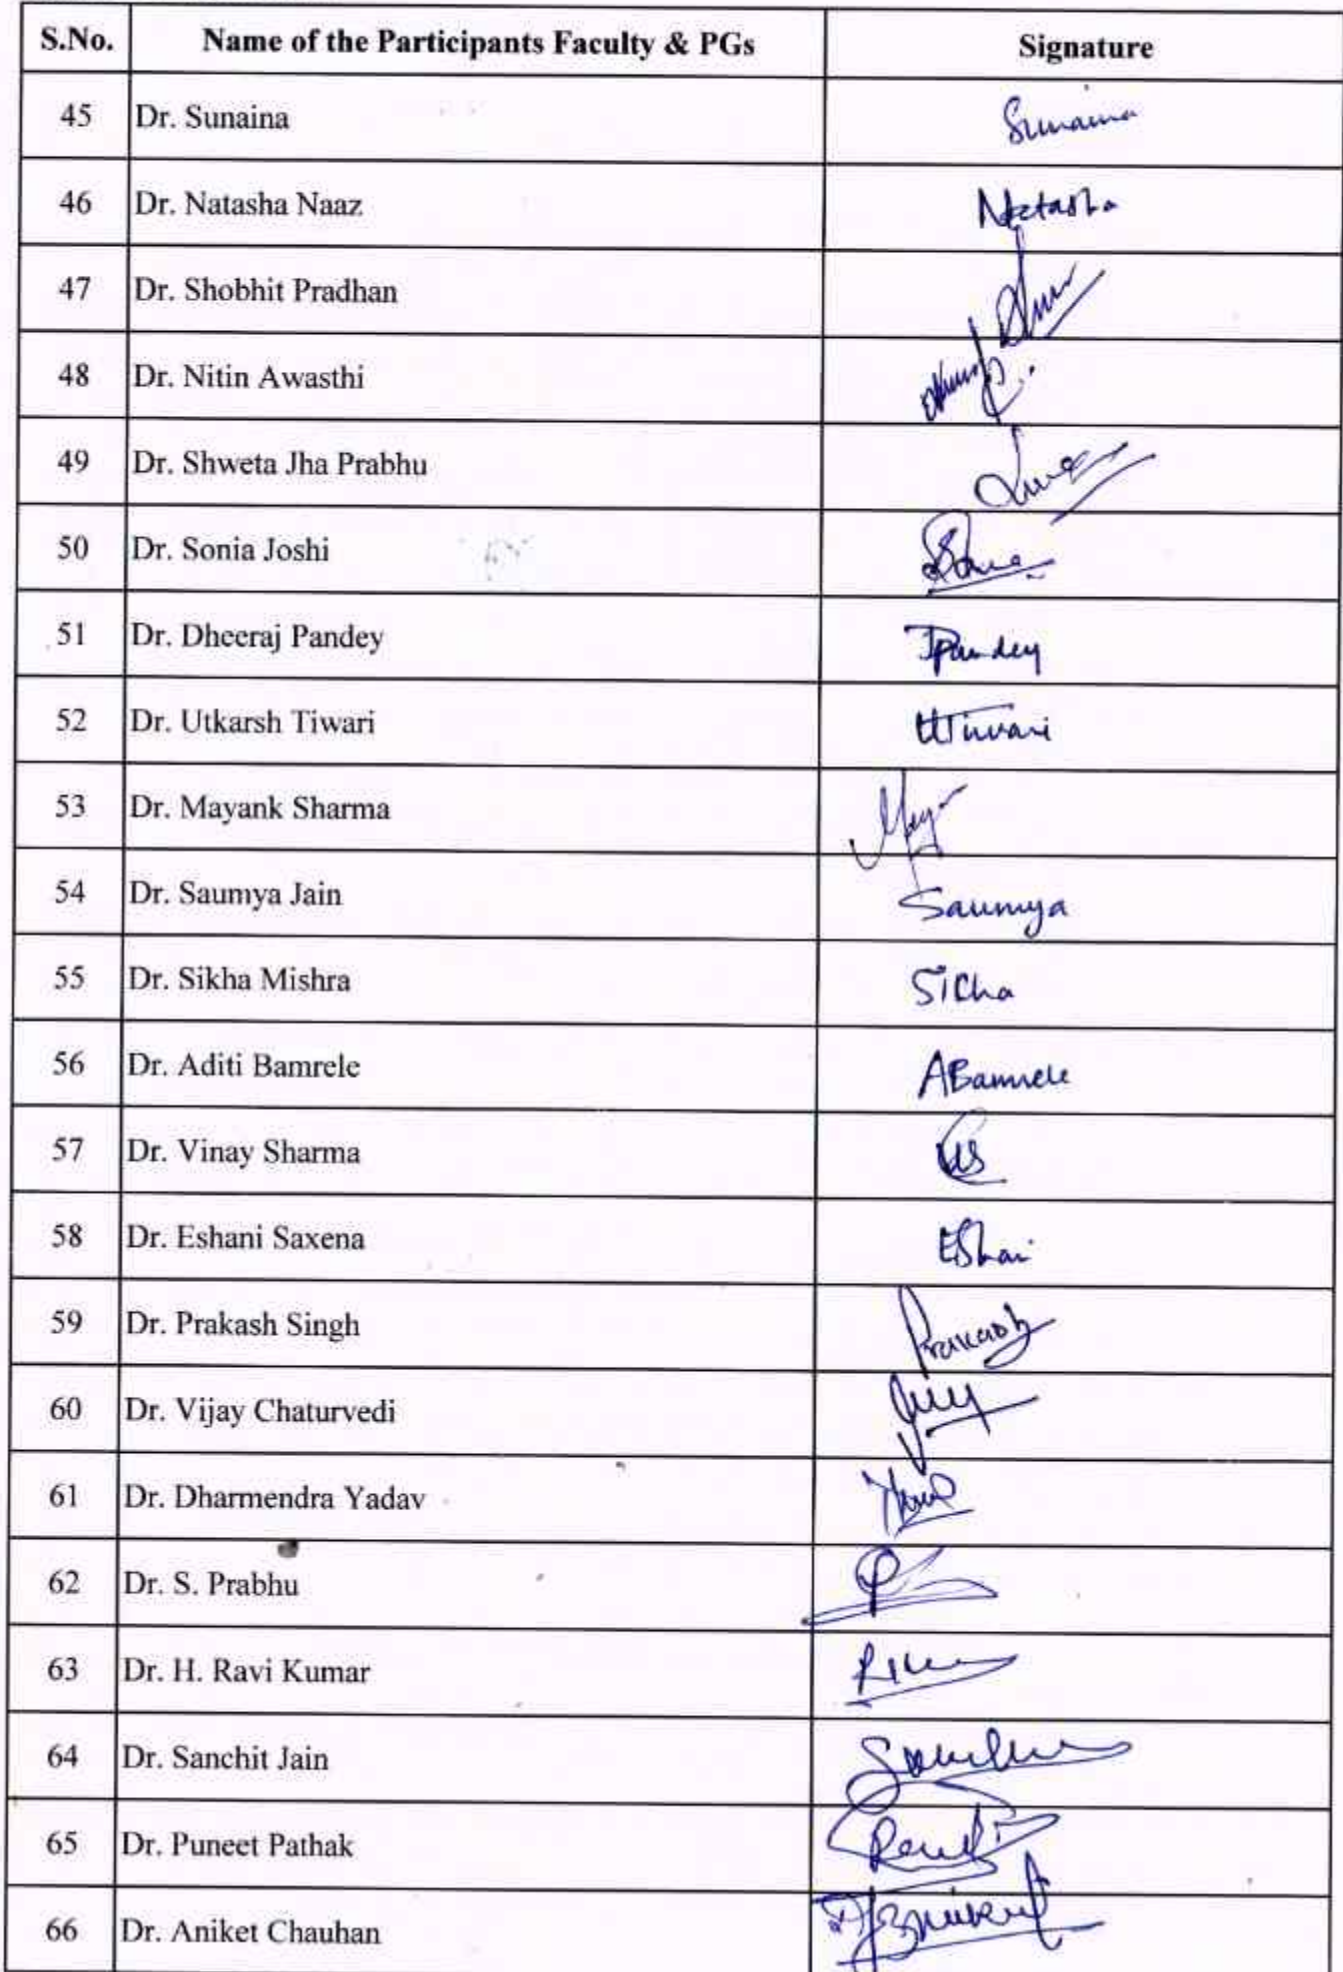 S.No. Name of the Participants Faculty & PGs Signature
45 Dr. Sunaina Sunaina
46 Dr. Natasha Naaz Natasha
47 Dr. Shobhit Pradhan
48 Dr. Nitin Awasthi
49 Dr. Shweta Jha Prabhu
50 Dr. Sonia Joshi
51 Dr. Dheeraj Pandey DPandey
52 Dr. Utkarsh Tiwari UTiwari
53 Dr. Mayank Sharma
54 Dr. Saumya Jain Saumya
55 Dr. Sikha Mishra
56 Dr. Aditi Bamrele ABamrele
57 Dr. Vinay Sharma
58 Dr. Eshani Saxena
59 Dr. Prakash Singh Prakash
60 Dr. Vijay Chaturvedi
61 Dr. Dharmendra Yadav
62 Dr. S. Prabhu
63 Dr. H. Ravi Kumar
64 Dr. Sanchit Jain
65 Dr. Puneet Pathak
66 Dr. Aniket Chauhan